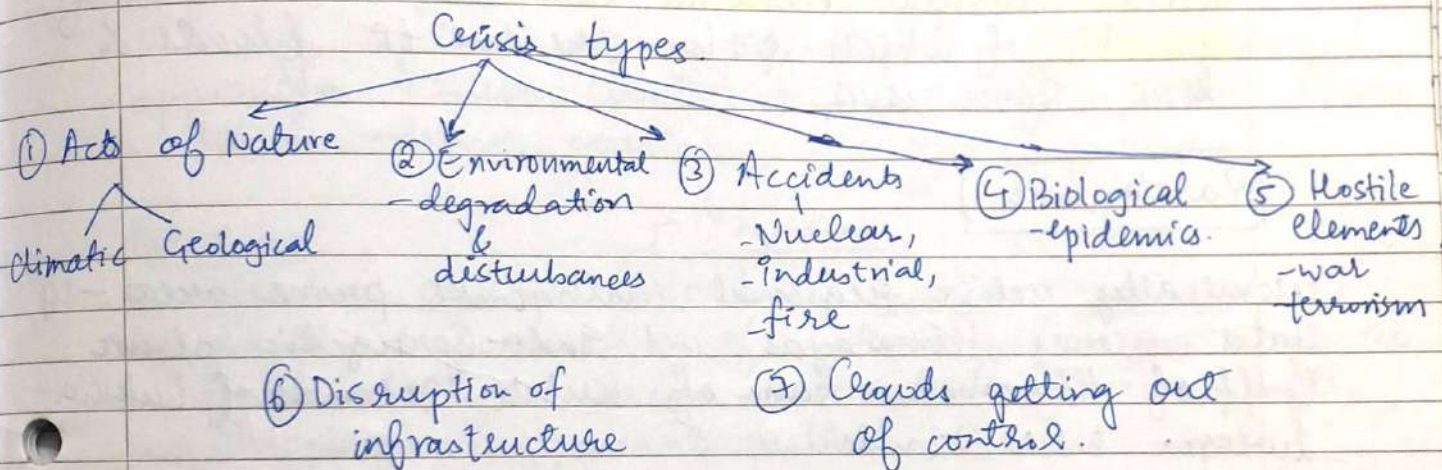 Crisis types.
① Acts of Nature
climatic Geological
② Environmental
-degradation
&
disturbances
③ Accidents
-Nuclear,
-industrial,
-fire
④ Biological
-epidemics.
⑤ Hostile
elements
-war
-terrorism
⑥ Disruption of
infrastructure
⑦ Crowds getting out
of control.